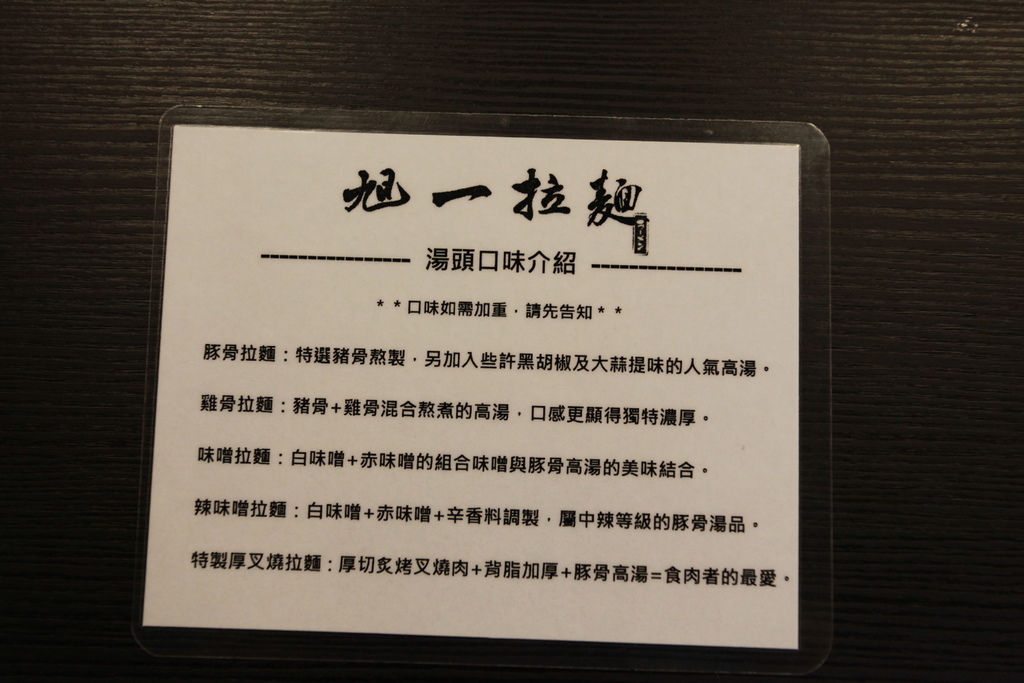 旭一拉麵
---------------- 湯頭口味介紹 ----------------
**口味如需加重，請先告知**
豚骨拉麵：特選豬骨熬製，另加入些許黑胡椒及大蒜提味的人氣高湯。
雞骨拉麵：豬骨+雞骨混合熬煮的高湯，口感更顯得獨特濃厚。
味噌拉麵：白味噌+赤味噌的組合味噌與豚骨高湯的美味結合。
辣味噌拉麵：白味噌+赤味噌+辛香料調製，屬中辣等級的豚骨湯品。
特製厚叉燒拉麵：厚切炙烤叉燒肉+背脂加厚+豚骨高湯=食肉者的最愛。